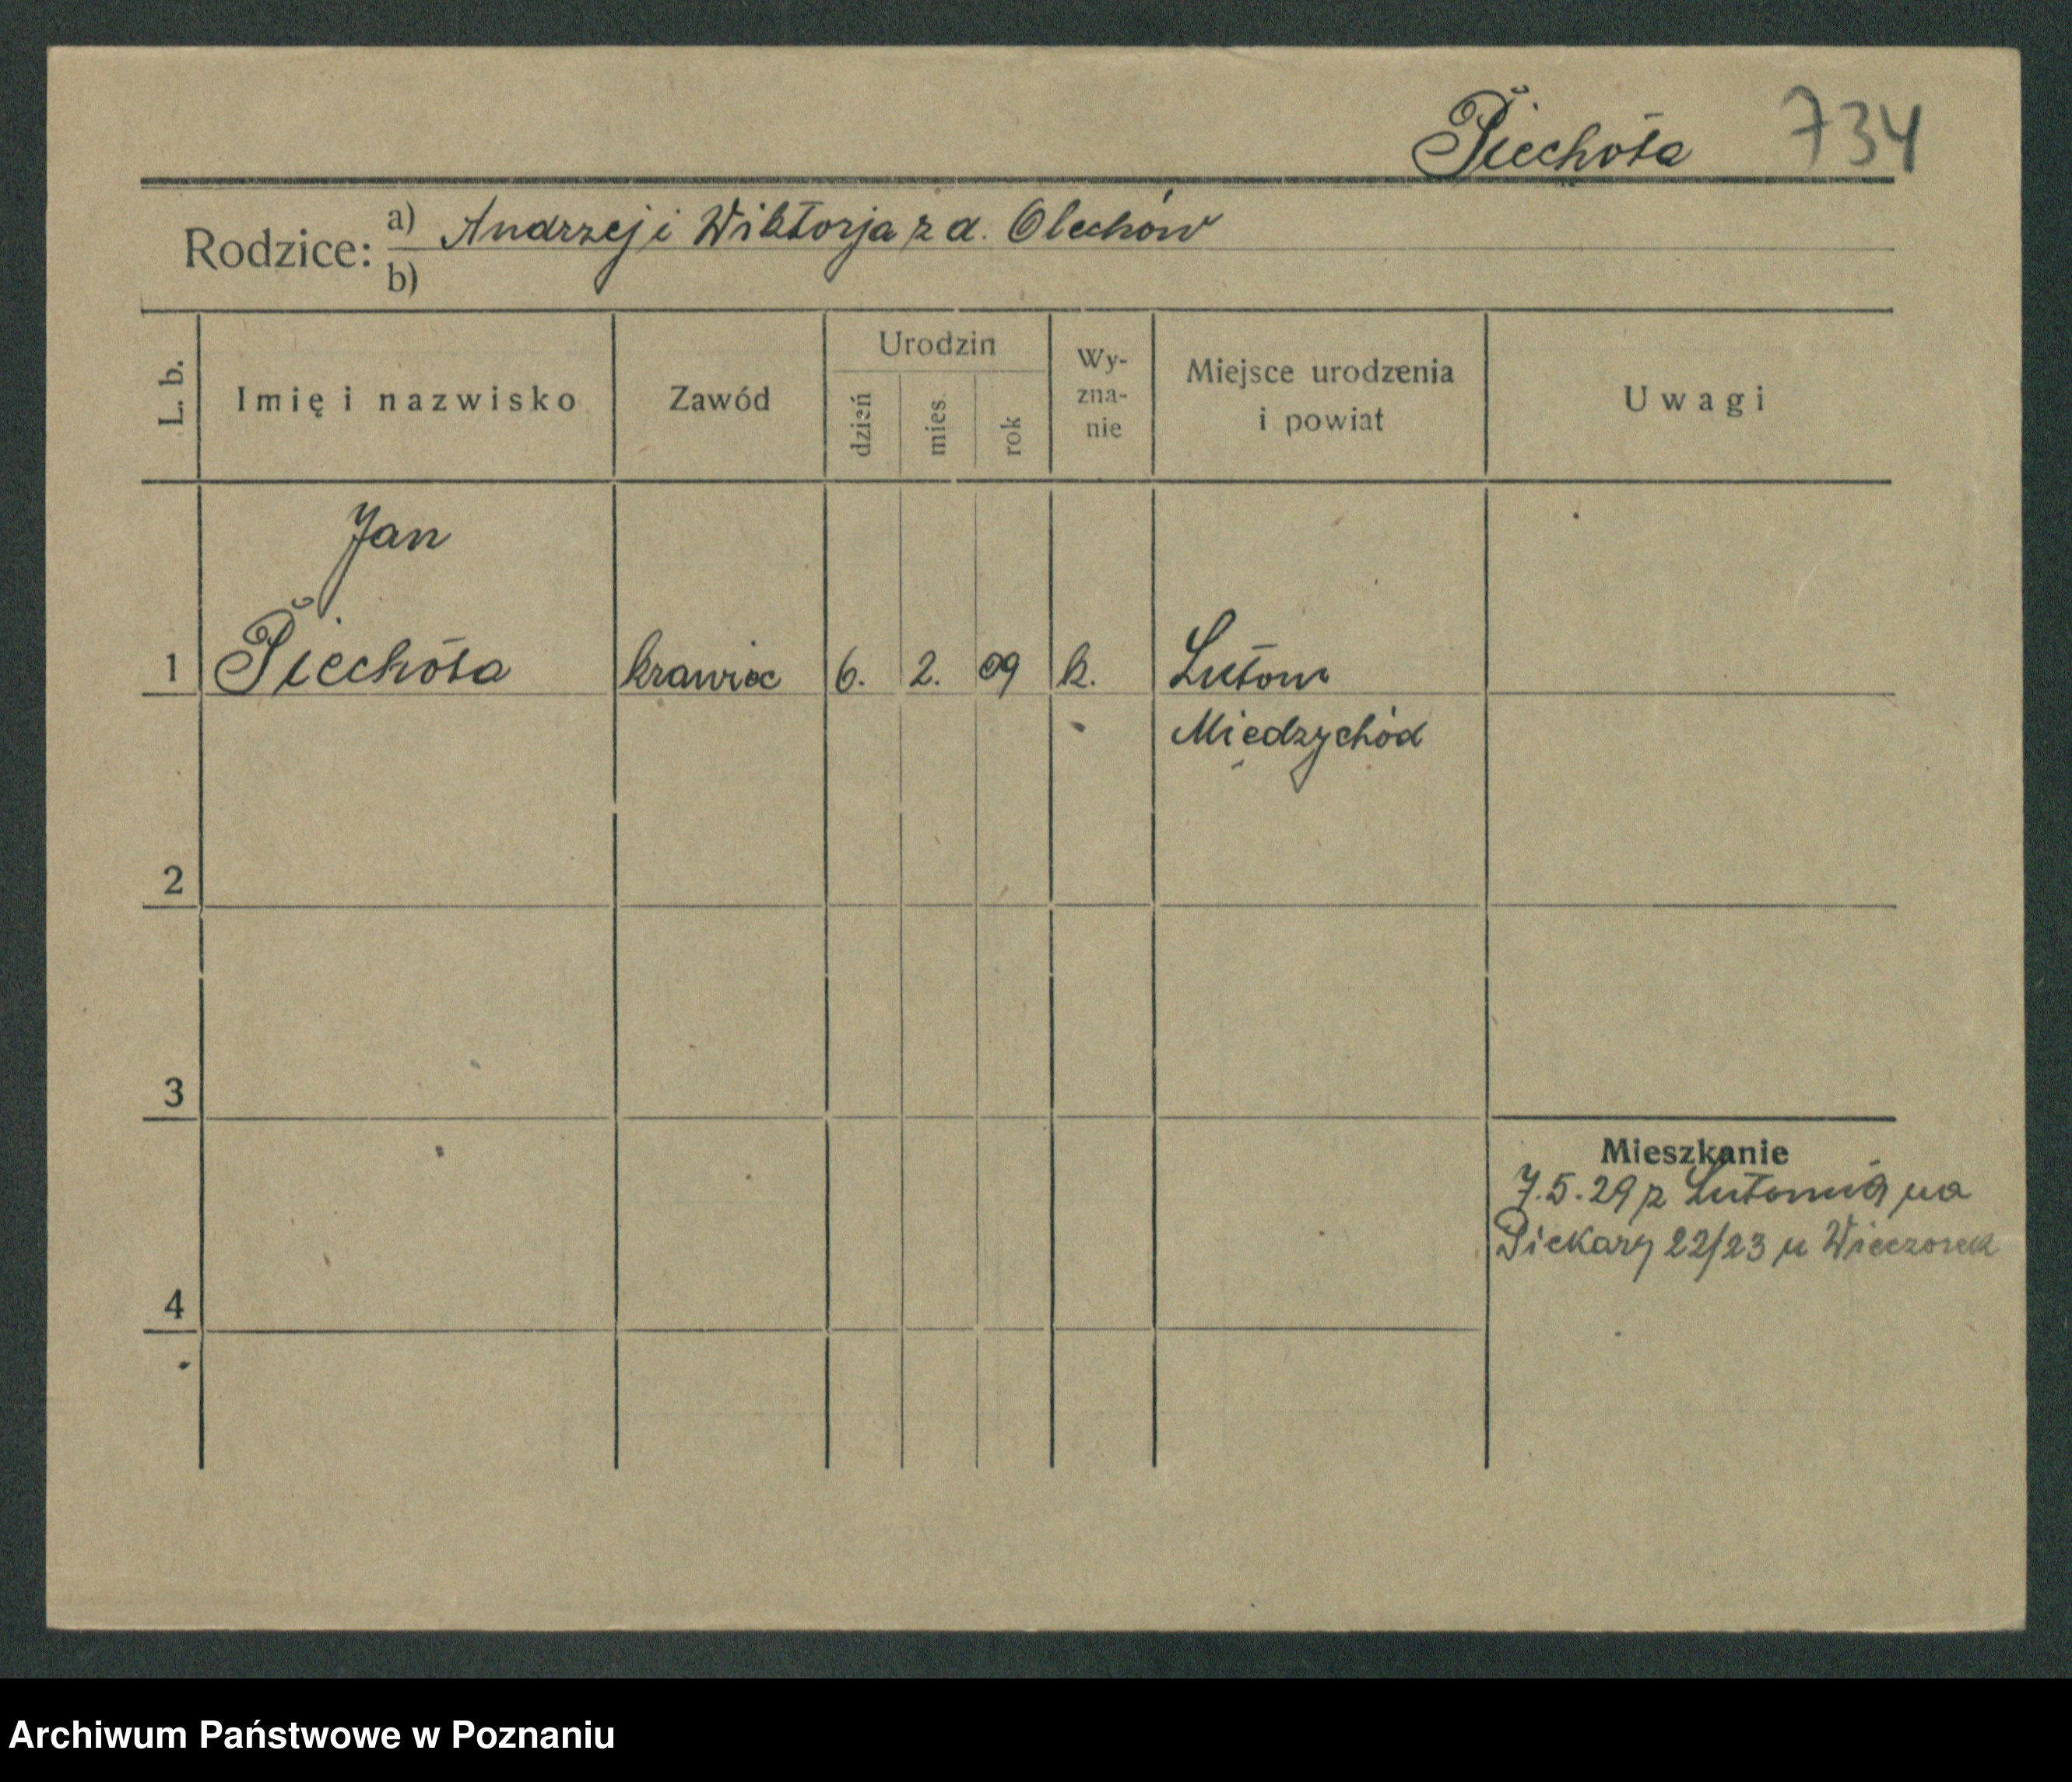 Piechota 734
Rodzice: a) Andrzej i Wiktorja z d. Olechów
b)
L. b. Imię i nazwisko Zawód Urodzin dzień mies. rok Wy-zna-nie Miejsce urodzenia i powiat Uwagi
Jan
1 Piechota krawiec 6. 2. 09 k. Lutom
Międzychód
2
3
Mieszkanie
7.5.29 z Lutomia na
Piekary 22/23 u Wieczorek
4
Archiwum Państwowe w Poznaniu